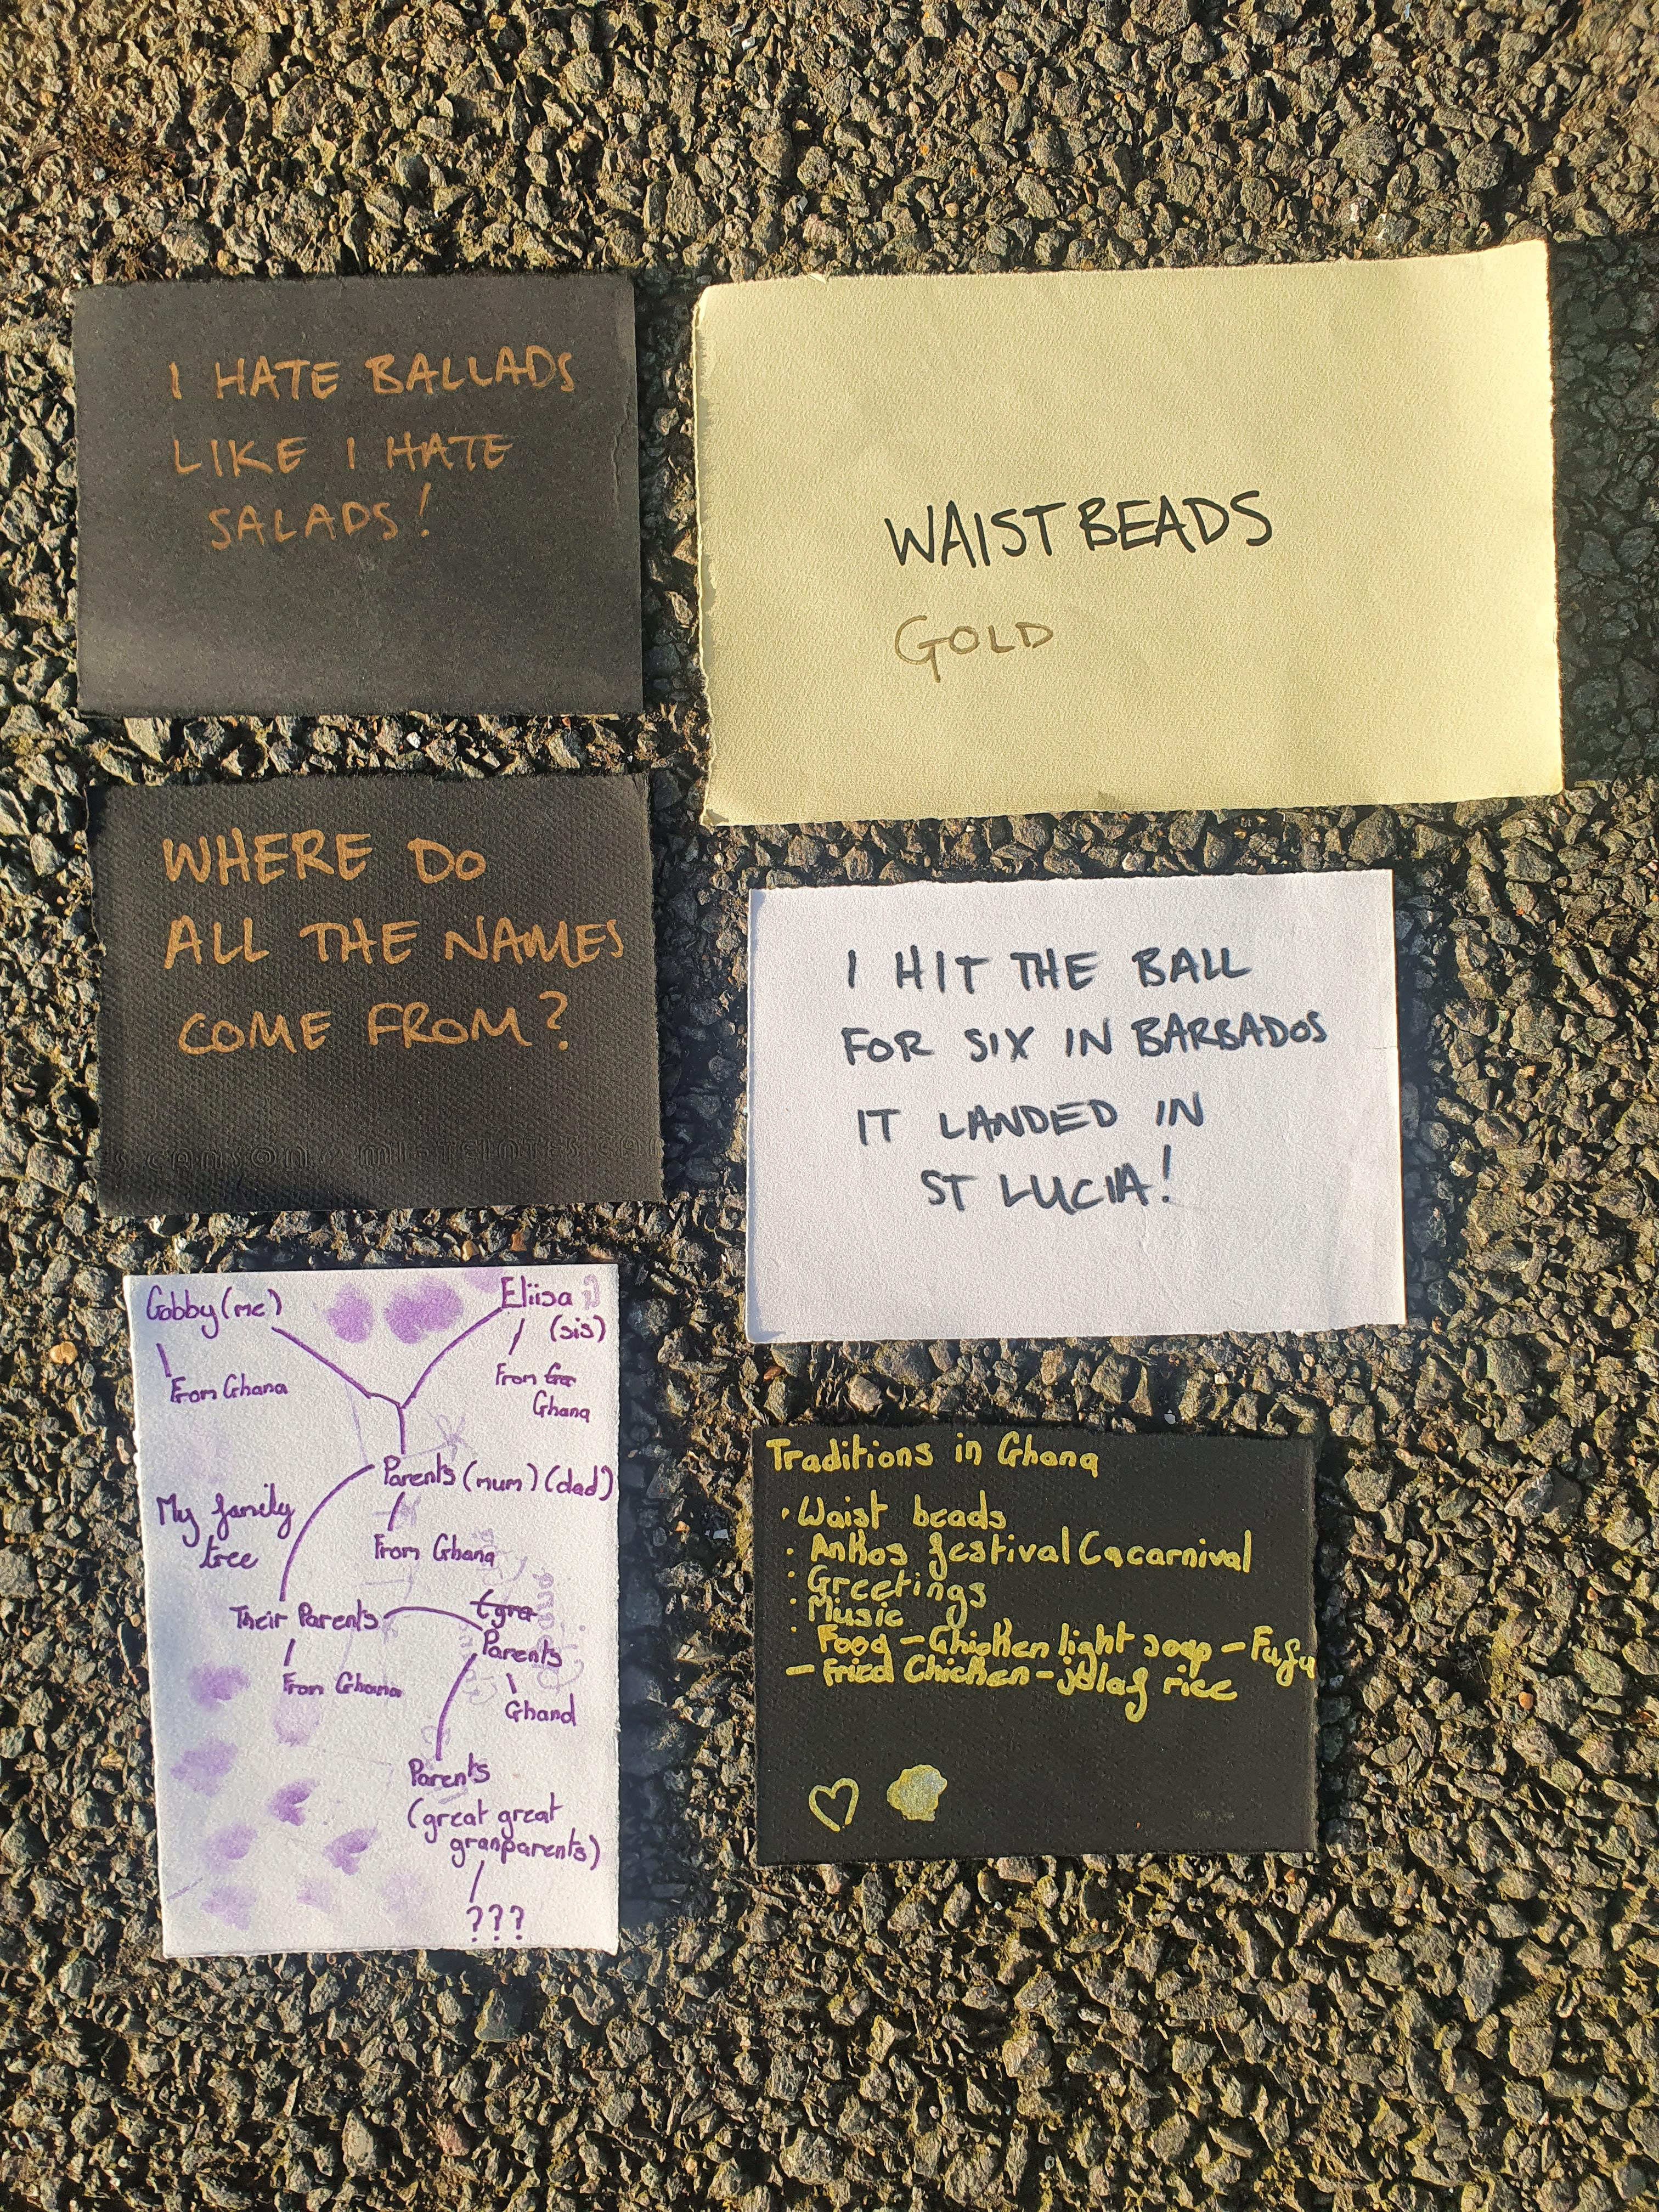 I HATE BALLADS
LIKE I HATE
SALADS!
WAIST BEADS
GOLD
WHERE DO
ALL THE NAMES
COME FROM?
S CANSON MI-TEINTES CA
I HIT THE BALL
FOR SIX IN BARBADOS
IT LANDED IN
ST LUCIA!
Gabby (me)
Eliisa
(sis)
From Ghana
From Ga
Ghana
Parents (mum) (dad)
My family
tree
From Ghana
Their Parents
(gra
Parents
From Ghana
Ghana
Parents
(great great
granparents)
???
Traditions in Ghana
• Waist beads
• Ankos festival (a carnival
• Greetings
• Music
• Food - Chicken light soap - Fufu
- Fried Chicken - jollaf rice